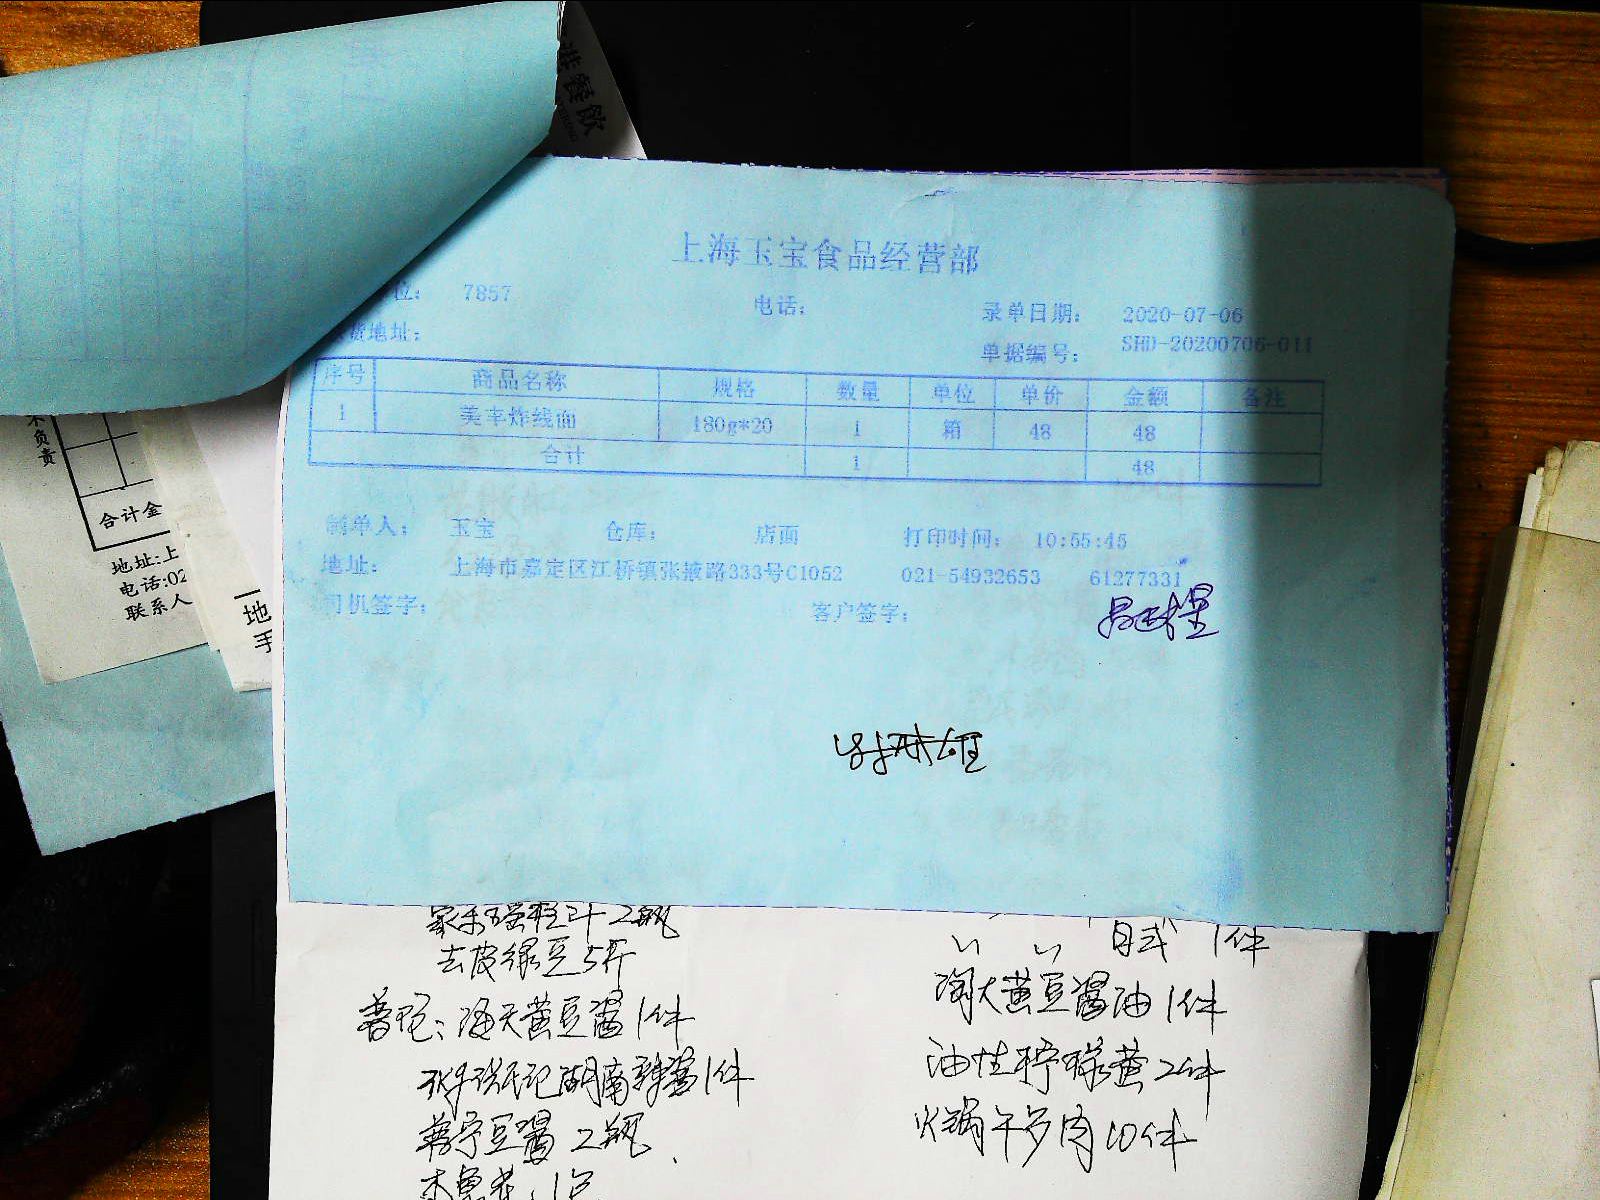 港餐飲
上海玉宝食品经营部
位： 7857 电话： 录单日期： 2020-07-06
货地址： 单据编号： SHD-20200706-011
序号 商品名称 规格 数量 单位 单价 金额 备注
1 美幸炸线面 180g*20 1 箱 48 48
合计 1 48
制单人： 玉宝 仓库： 店面 打印时间： 10:55:45
地址： 上海市嘉定区江桥镇张掖路333号C1052 021-54932653 61277331
司机签字： 客户签字：
不负责
合计金
地址:上
电话:02
联系人
地
手
2瓶
去皮绿豆5斤
海天黄豆酱1件
湖南辣酱1件
豆酱 2瓶
日式 1件
淘大黄豆酱油1件
油性柠檬黄2件
火锅午多肉10件